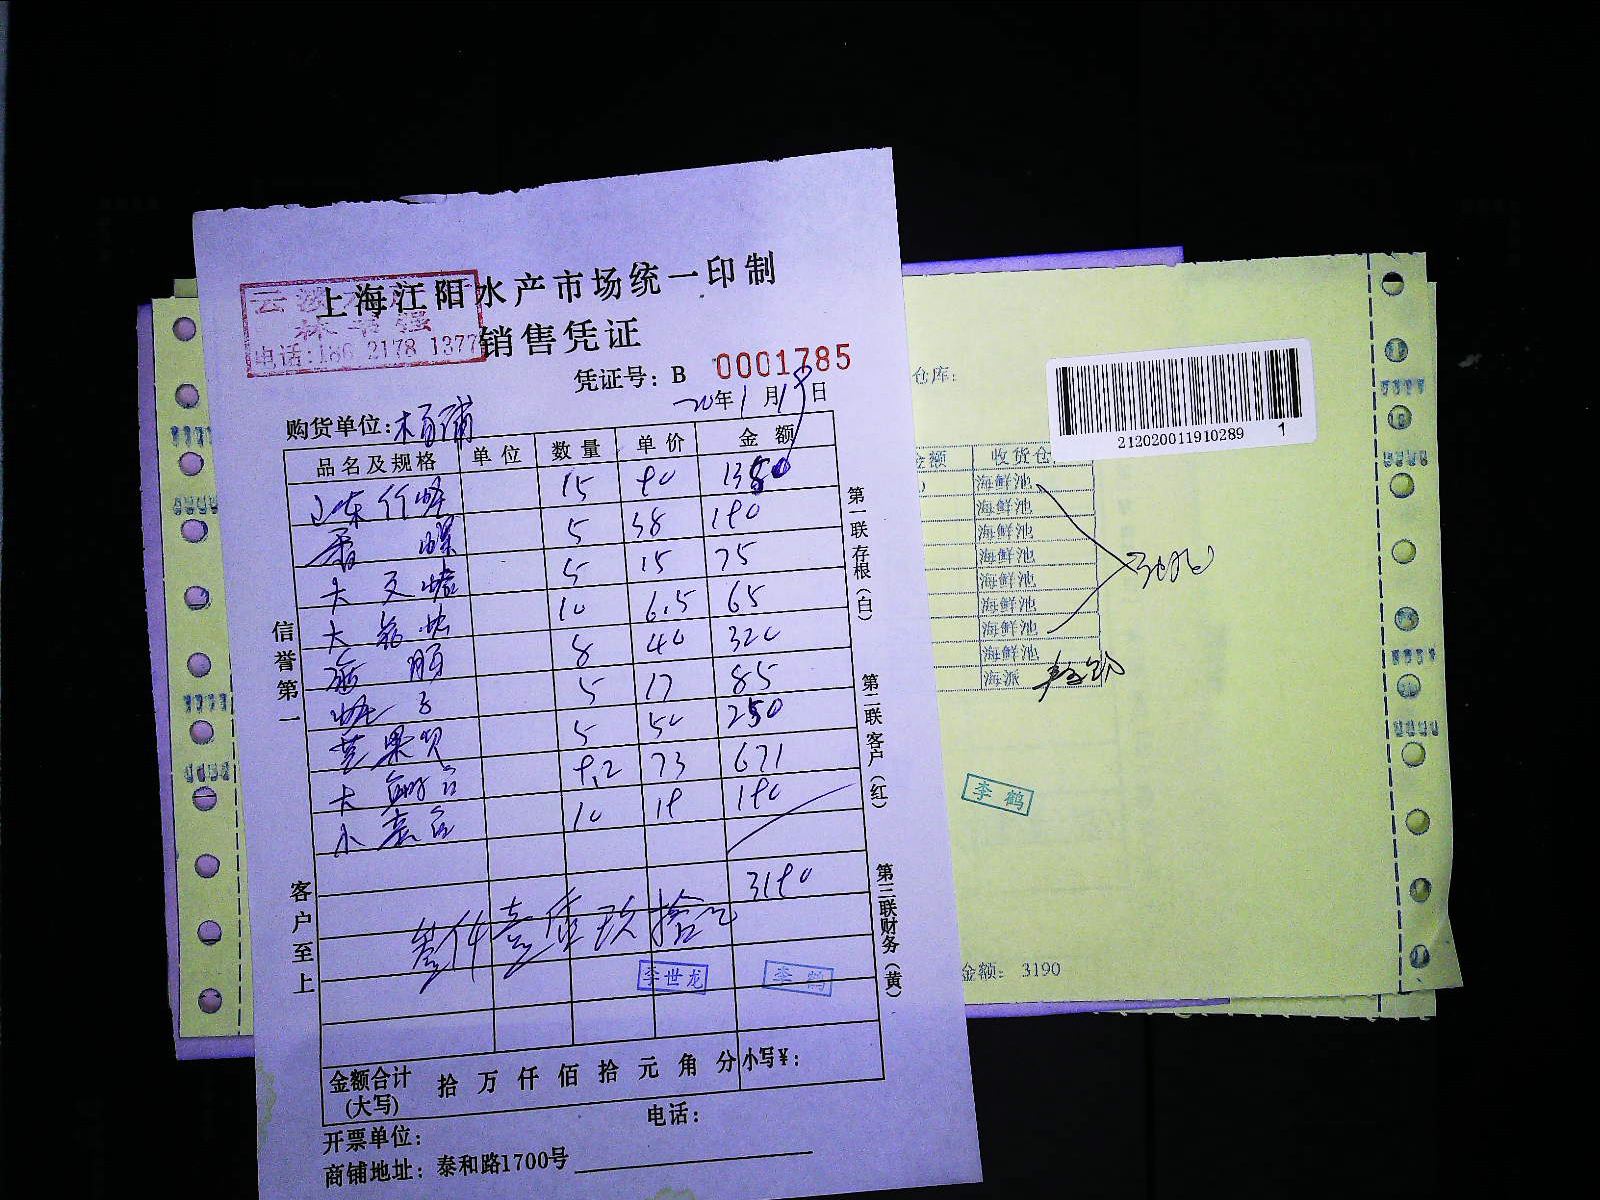 上海江阳水产市场统一印制
电话:186 2178 1377
销售凭证
凭证号: B 0001785
20年1月19日
购货单位:杨浦
品名及规格 单位 数量 单价 金额
15 90 1350
5 38 190
大 15 75
大 10 6.5 65
8 40 320
蛏子 5 17 85
苹果贝 5 50 250
大鲍 9.2 73 671
小 10 19 190
3190
叁仟壹佰玖拾元
李世龙 李鹤
金额合计(大写) 拾万仟佰拾元角分 小写¥:
电话:
开票单位:
商铺地址: 泰和路1700号
信誉第一
客户至上
第一联存根(白)
第二联客户(红)
第三联财务(黄)
仓库:
212020011910289 1
金额 收货仓
海鲜池
海鲜池
海鲜池
海鲜池
海鲜池
海鲜池
海鲜池
海鲜池
海派
李鹤
金额: 3190